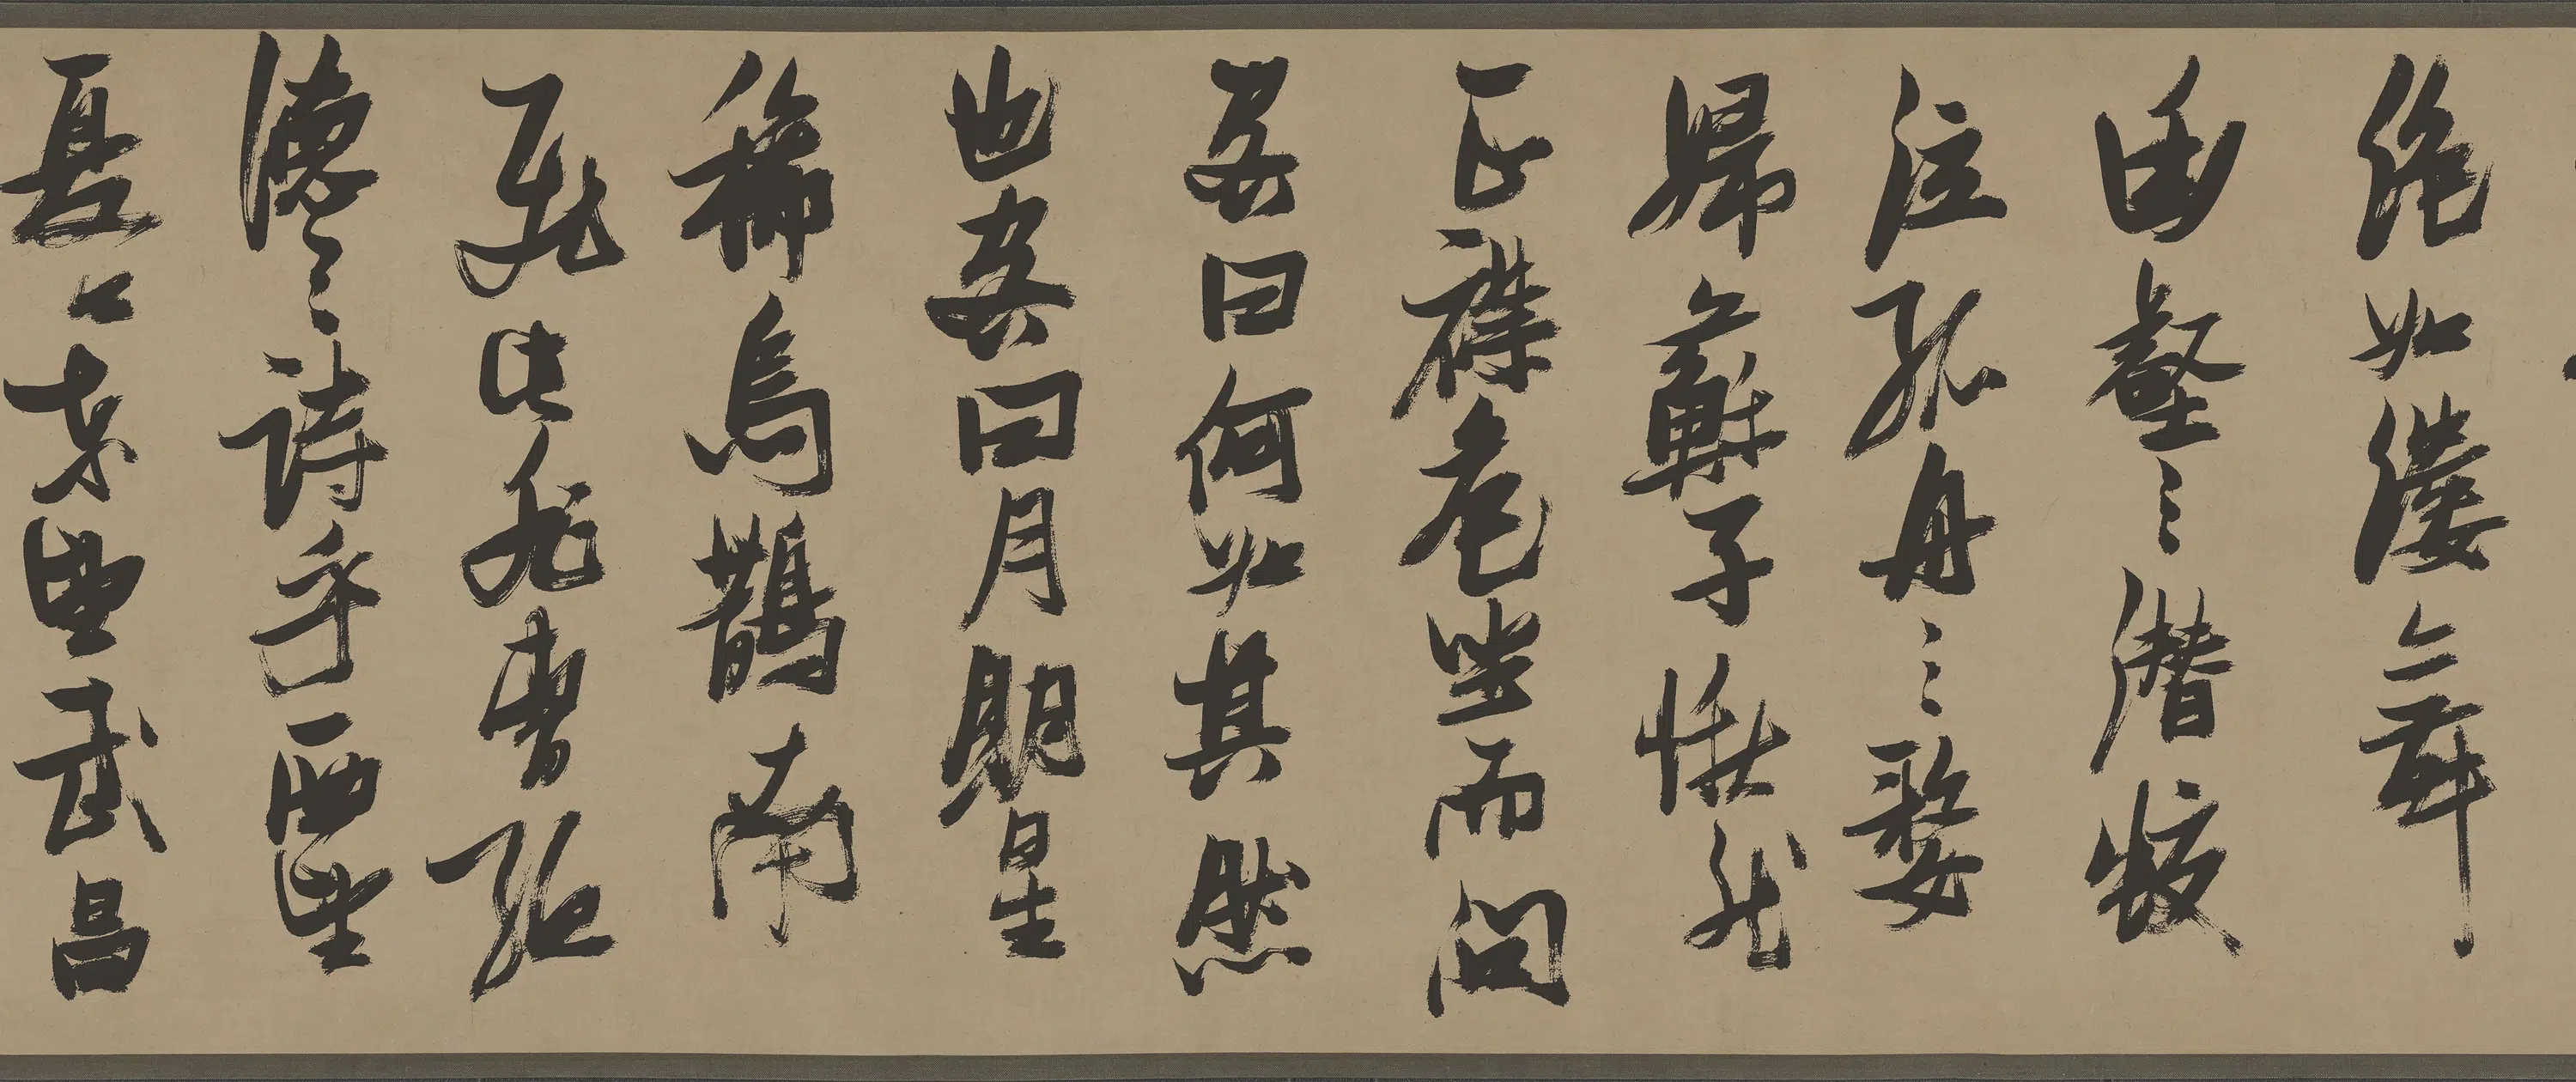 絶如縷舞
幽壑之潛蛟
泣孤舟之嫠
婦蘇子愀然
正襟危坐而問
客曰何如其然
也客曰月明星
稀烏鵲南
飛此非曹孟
德之詩乎西望
夏口東望武昌